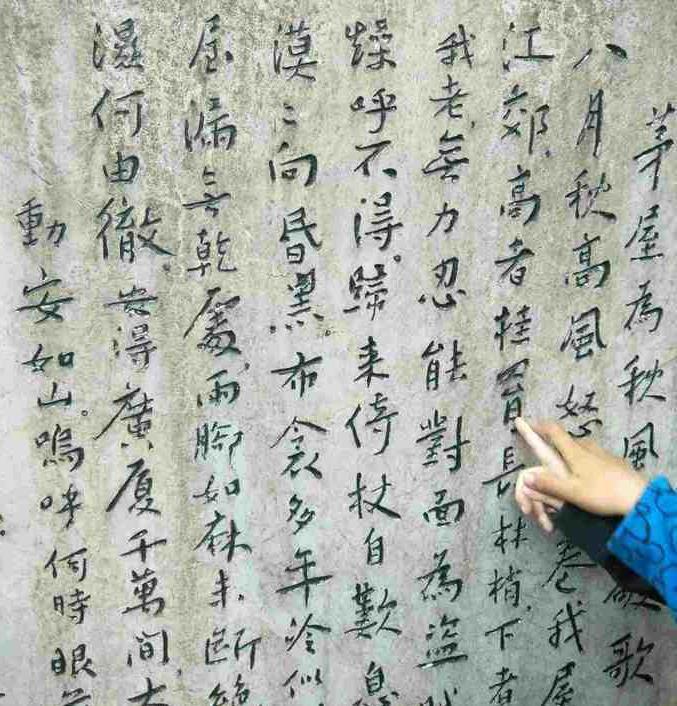 茅屋為秋風破歌
八月秋高風怒卷我屋
江郊,高者挂罥長林梢,下者
我老,無力忍能對面為盜賊
燥呼不得。歸来倚杖自歎息
漠〻向昏黑。布衾多年冷似
屋漏無乾處,雨腳如麻未断絶
濕何由徹。安得廣厦千萬間,大
動安如山。嗚呼何時眼前